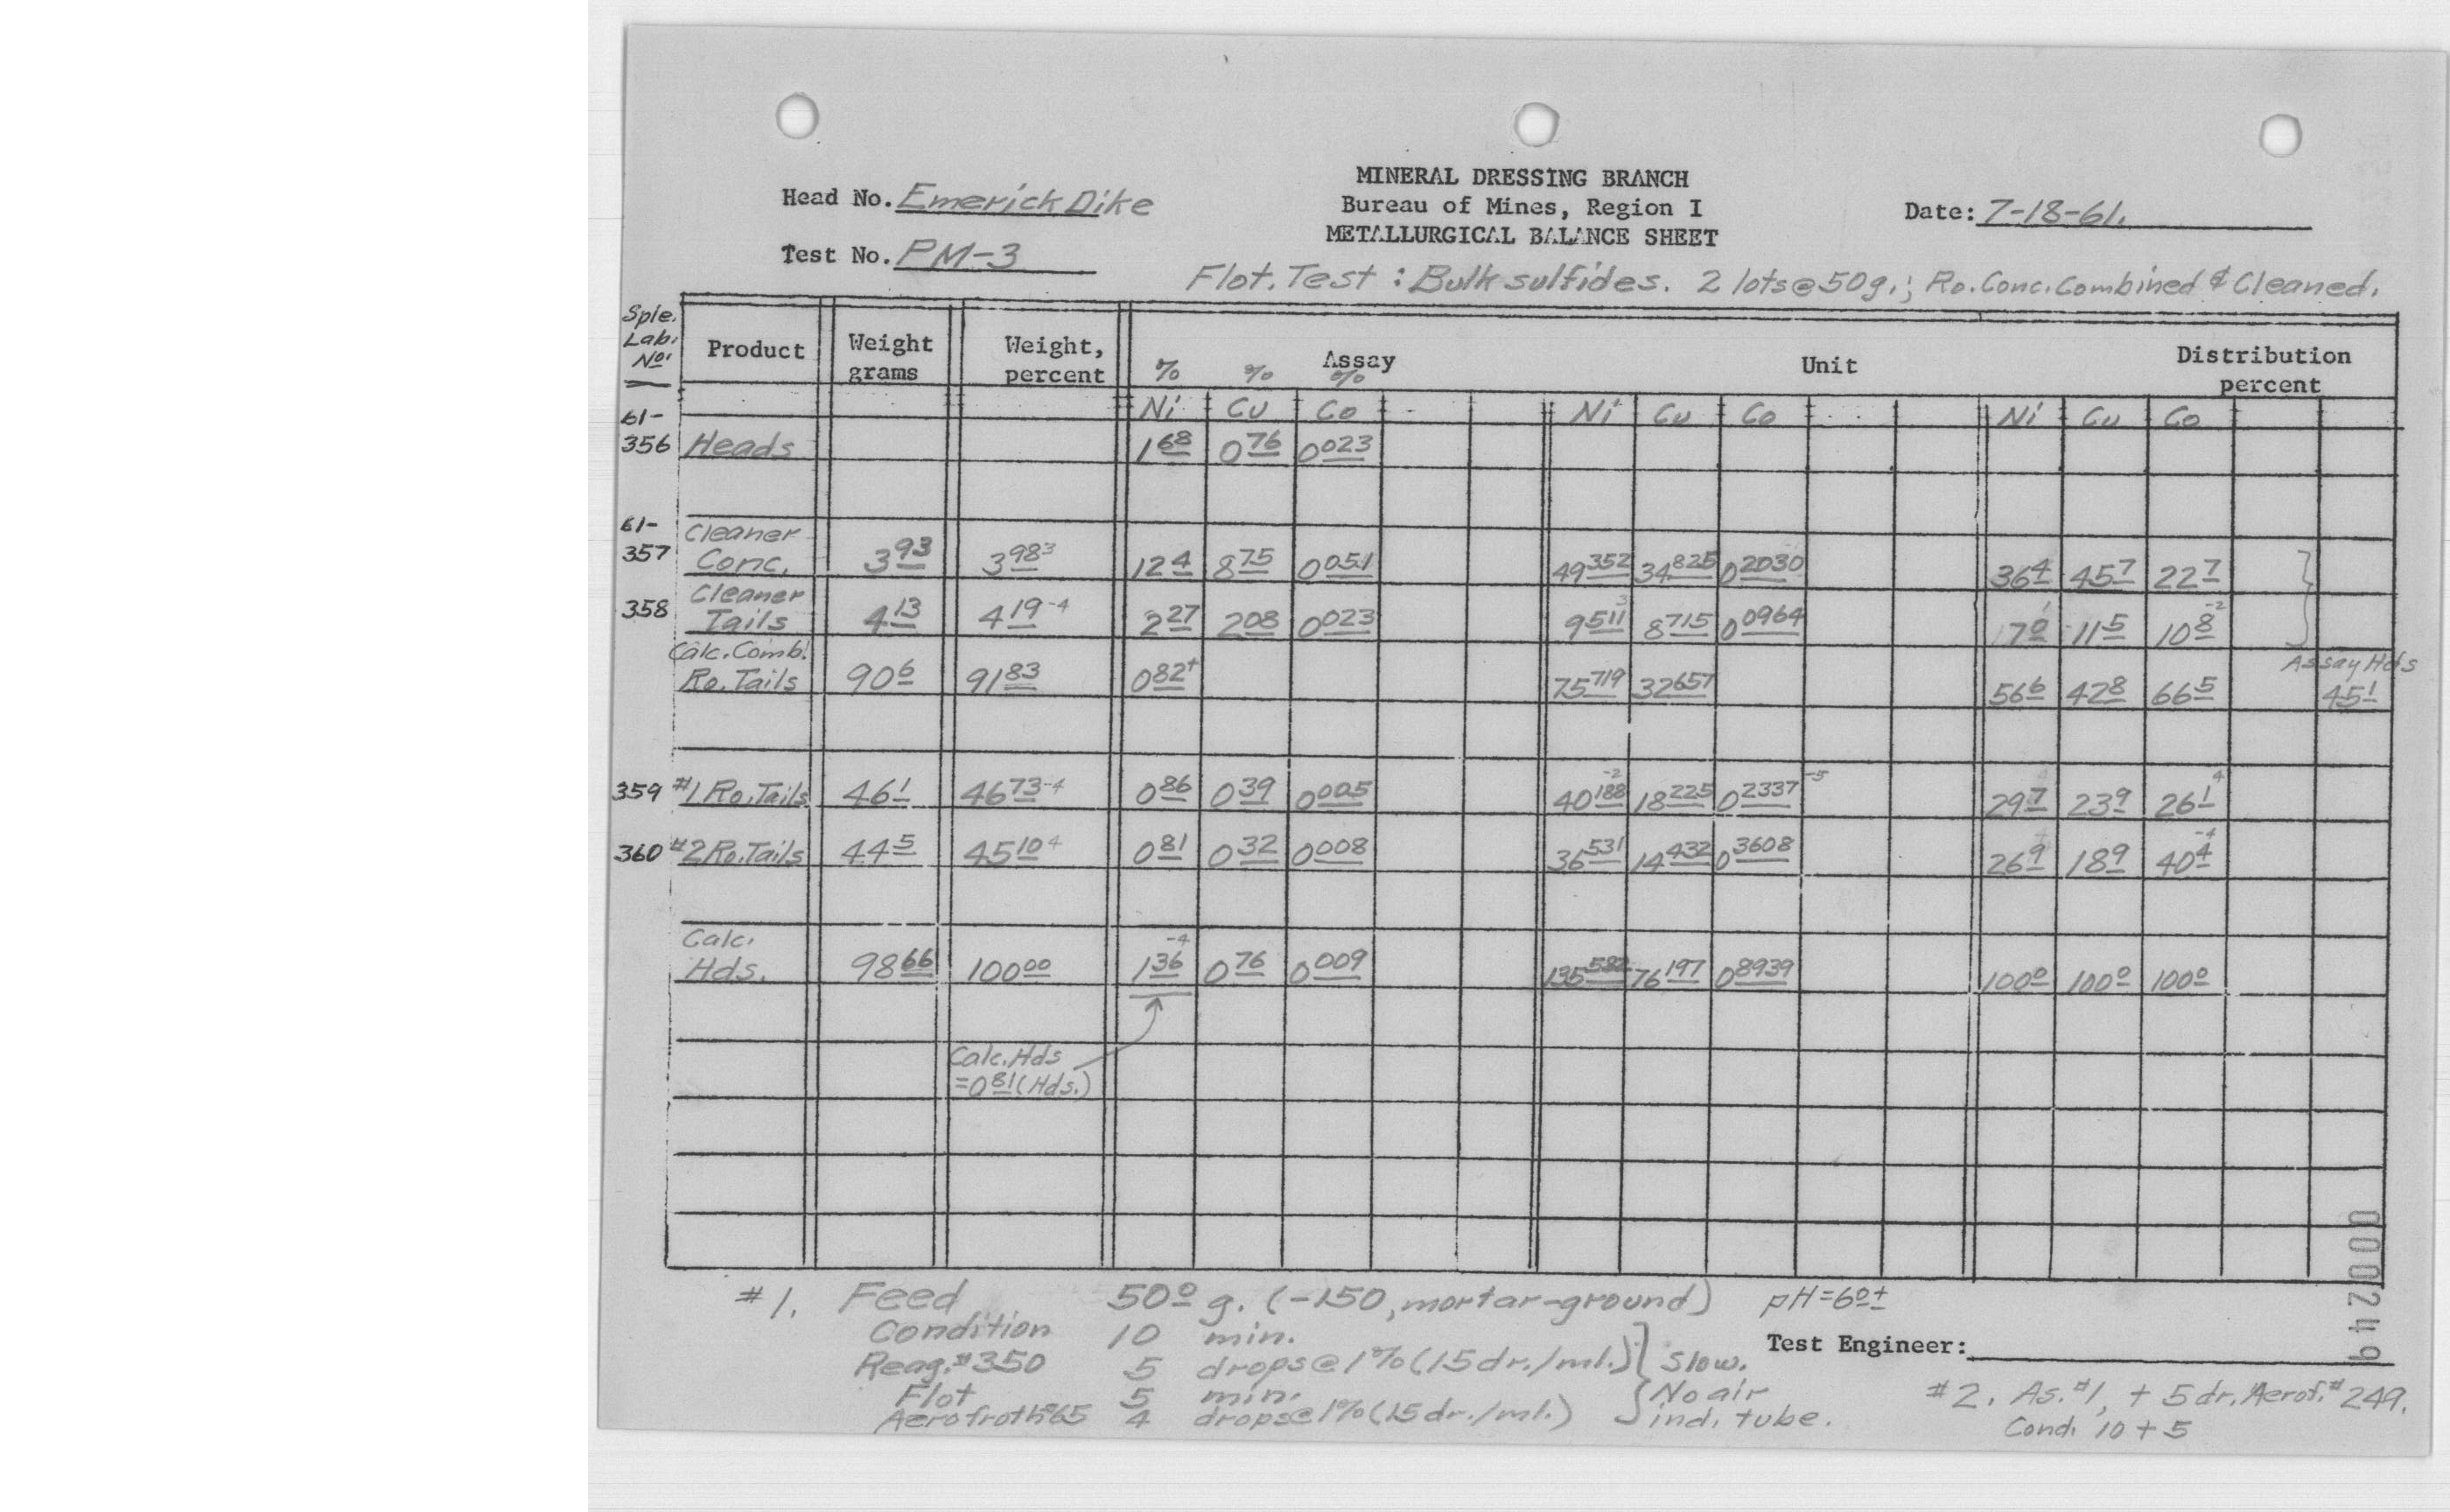 MINERAL DRESSING BRANCH
Head No. Emerick Dike Bureau of Mines, Region I Date: 7-18-61.
METALLURGICAL BALANCE SHEET
Test No. PM-3
Flot. Test : Bulk sulfides. 2 lots @ 50g.; Ro. Conc. Combined & Cleaned.
Sple. Lab. No. Product Weight grams Weight, percent Assay Unit Distribution percent
% % %
61- Ni Cu Co Ni Cu Co Ni Cu Co
356 Heads 1 68 0 76 0 023
61-
357 Cleaner Conc. 3 93 3 98 3 12 4 8 75 0 051 49 352 34 825 0 2030 36 4 45 7 22 7
358 Cleaner Tails 4 13 4 19 -4 2 27 2 08 0 023 9 511 3 8 715 0 0964 7 0 11 5 10 8 -2
Calc. Comb. Ro. Tails 90 6 91 83 0 82+ 75 719 32 657 56 6 42 8 66 5 Assay Hds 45 1
359 #1 Ro. Tails 46 1 46 73 -4 0 86 0 39 0 005 40 188 -2 18 225 0 2337 -5 29 7 23 9 26 1 4
360 #2 Ro. Tails 44 5 45 10 4 0 81 0 32 0 008 36 531 14 432 0 3608 26 9 18 9 40 4 -4
Calc. Hds. 98 66 100 00 1 36 -4 0 76 0 009 135 582 76 197 0 8939 100 0 100 0 100 0
Calc. Hds
= 0 81 (Hds.)
#1. Feed 50 0 g. (-150, mortar-ground) pH = 6 0±
Condition 10 min.
Test Engineer:
Reag. #350 5 drops @ 1% (15 dr./ml.) Slow.
Flot 5 min. No air
Aerofroth #65 4 drops @ 1% (15 dr./ml.) ind. tube.
#2. As. #1, + 5 dr. Aerof. #249.
Cond. 10 + 5
000249